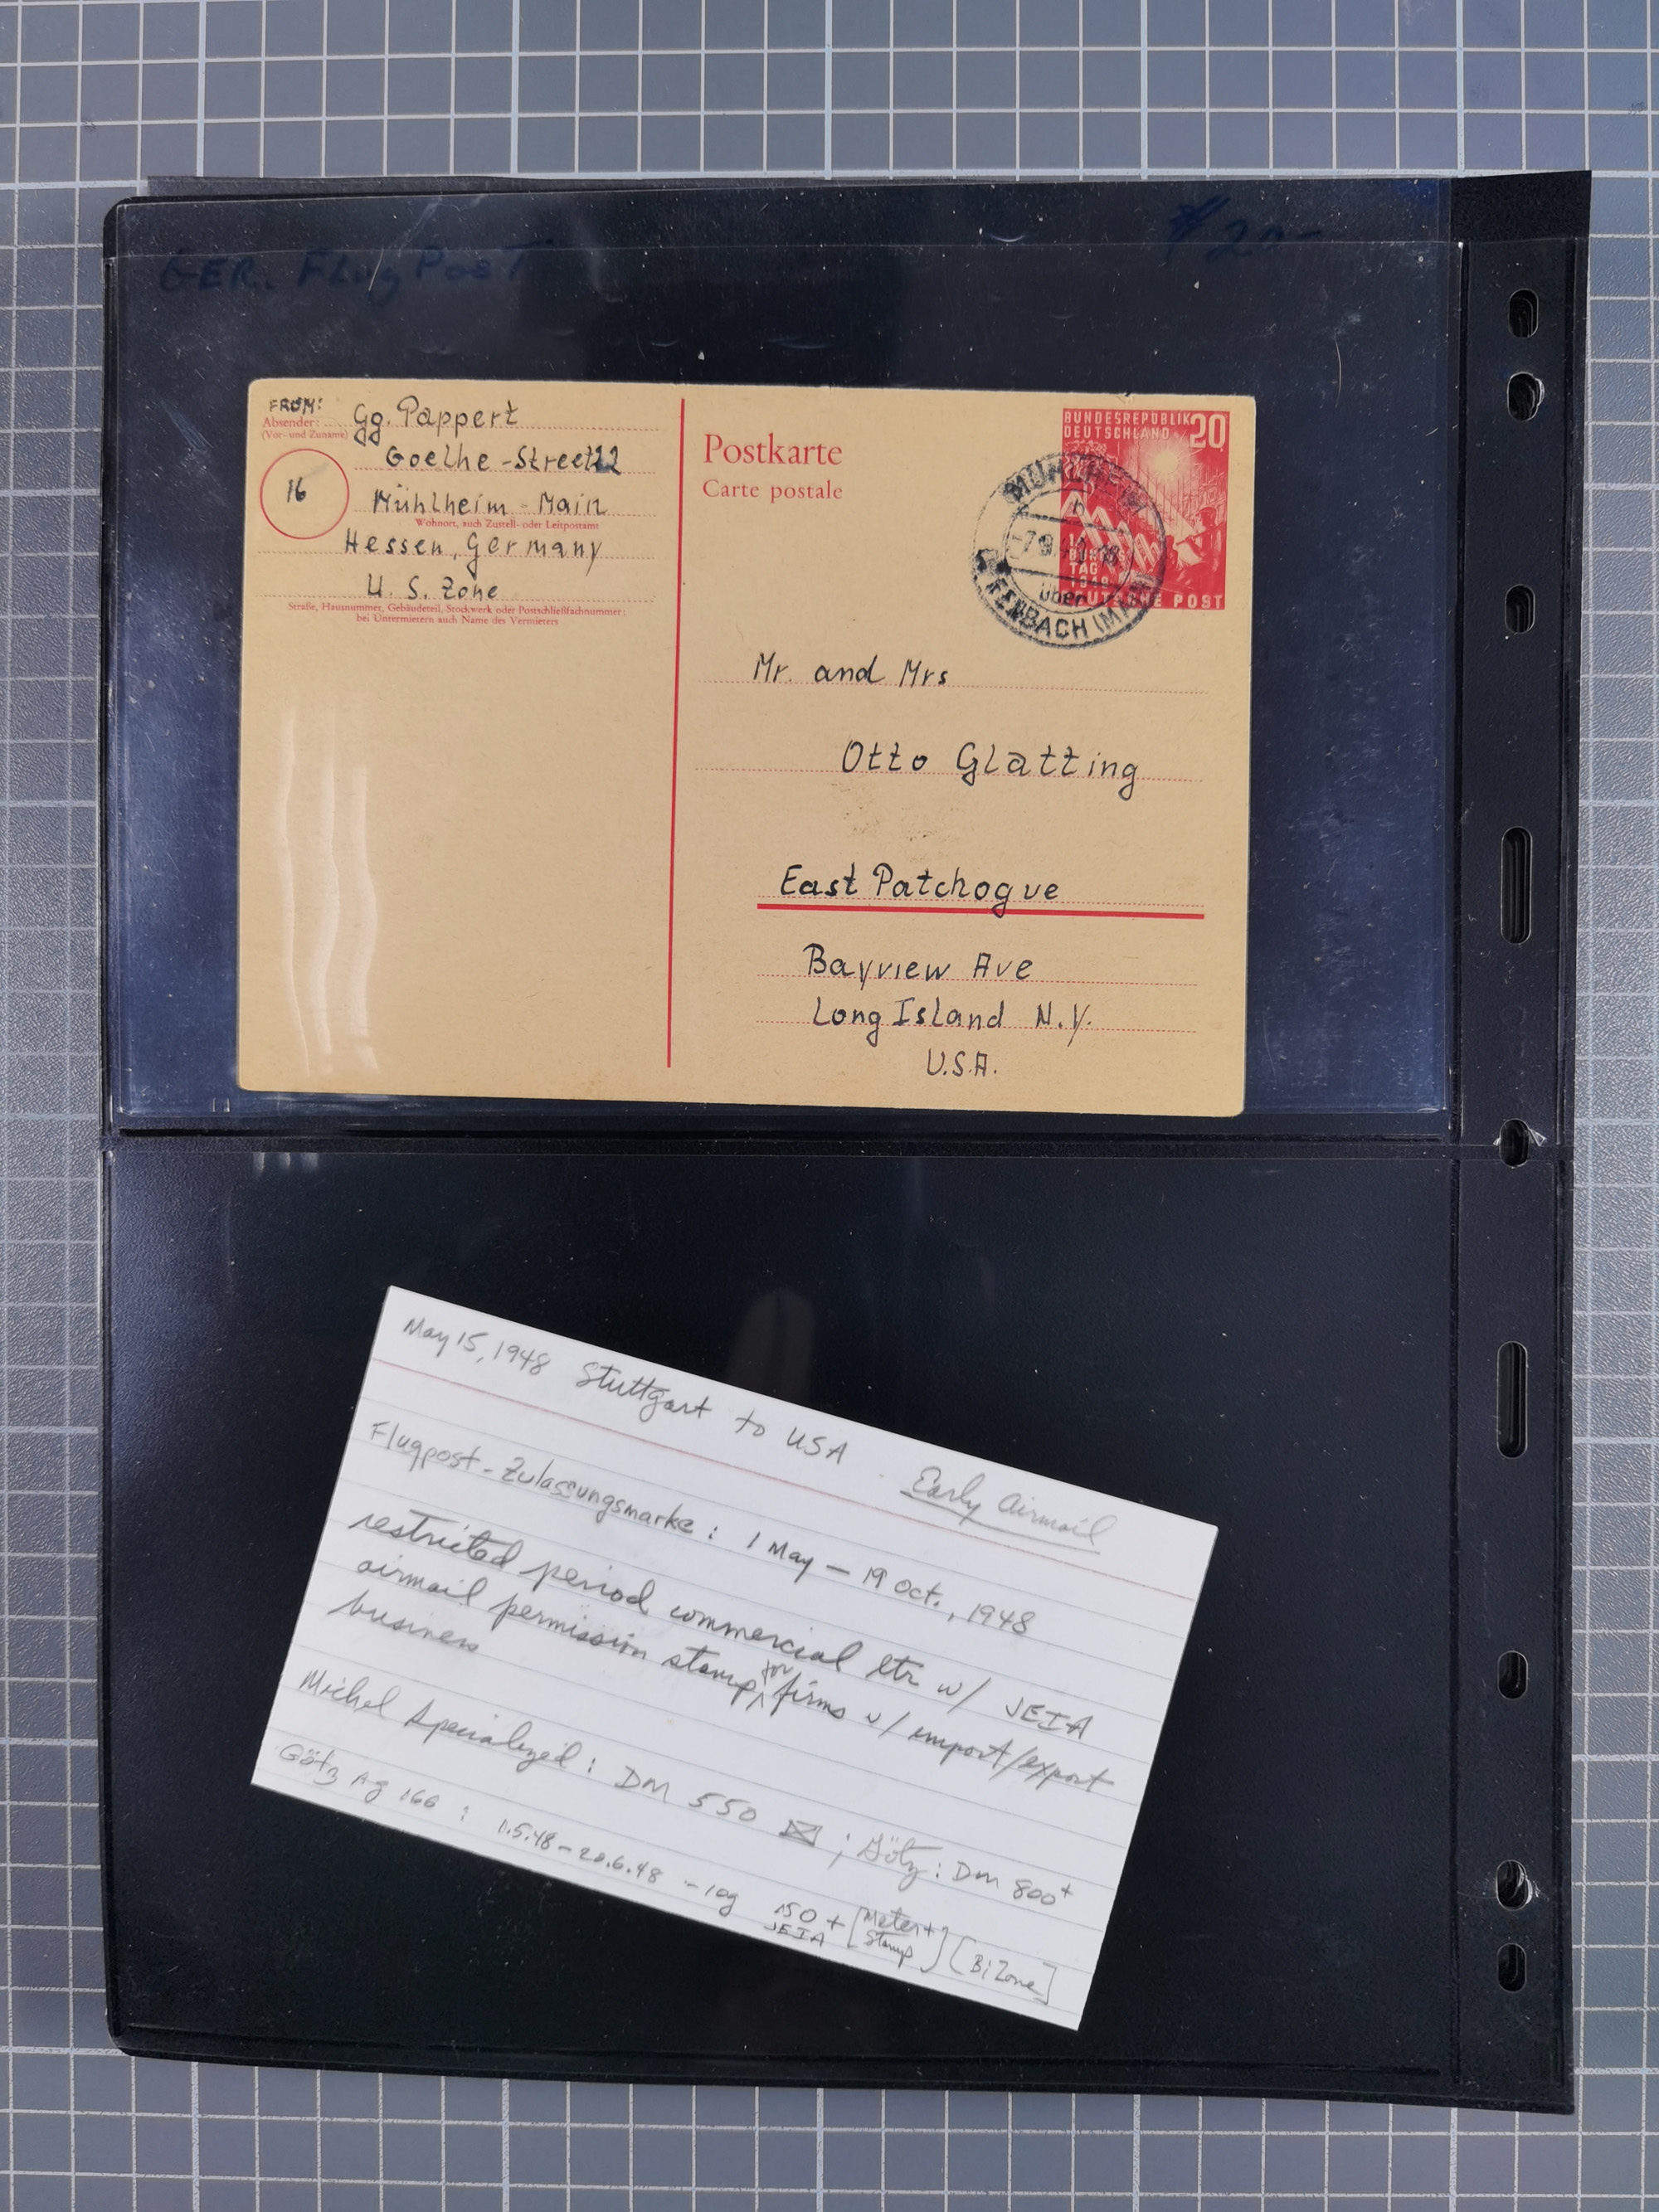 GER. Flug Post
$20-
FROM:
Absender:
(Vor- und Zuname)
Gg. Pappert
Goethe-Street 22
16
Mühlheim-Main
Wohnort, auch Zustell- oder Leitpostamt
Hessen, Germany
U. S. Zone
Straße, Hausnummer, Gebäudeteil, Stockwerk oder Postschließfachnummer;
bei Untermietern auch Name des Vermieters
Postkarte
Carte postale
BUNDESREPUBLIK 20
DEUTSCHLAND
TAG
1949
DEUTSCHE POST
MÜHLHEIM
b
über
OFFENBACH (MAIN)
Mr. and Mrs
Otto Glatting
East Patchogue
Bayview Ave
Long Island N.Y.
U.S.A.
May 15, 1948 Stuttgart to USA
Early Airmail
Flugpost-Zulassungsmarke: 1 May – 19 Oct., 1948
restricted period commercial ltr w/ JEIA
airmail permission stamp for firms w/ import/export
business
Michel Specialized: DM 550 ; Götz: DM 800+
Götz Ag 166: 1.5.48 – 20.6.48 -10g 150 + [Meter + Stamp] [BiZone]
JEIA